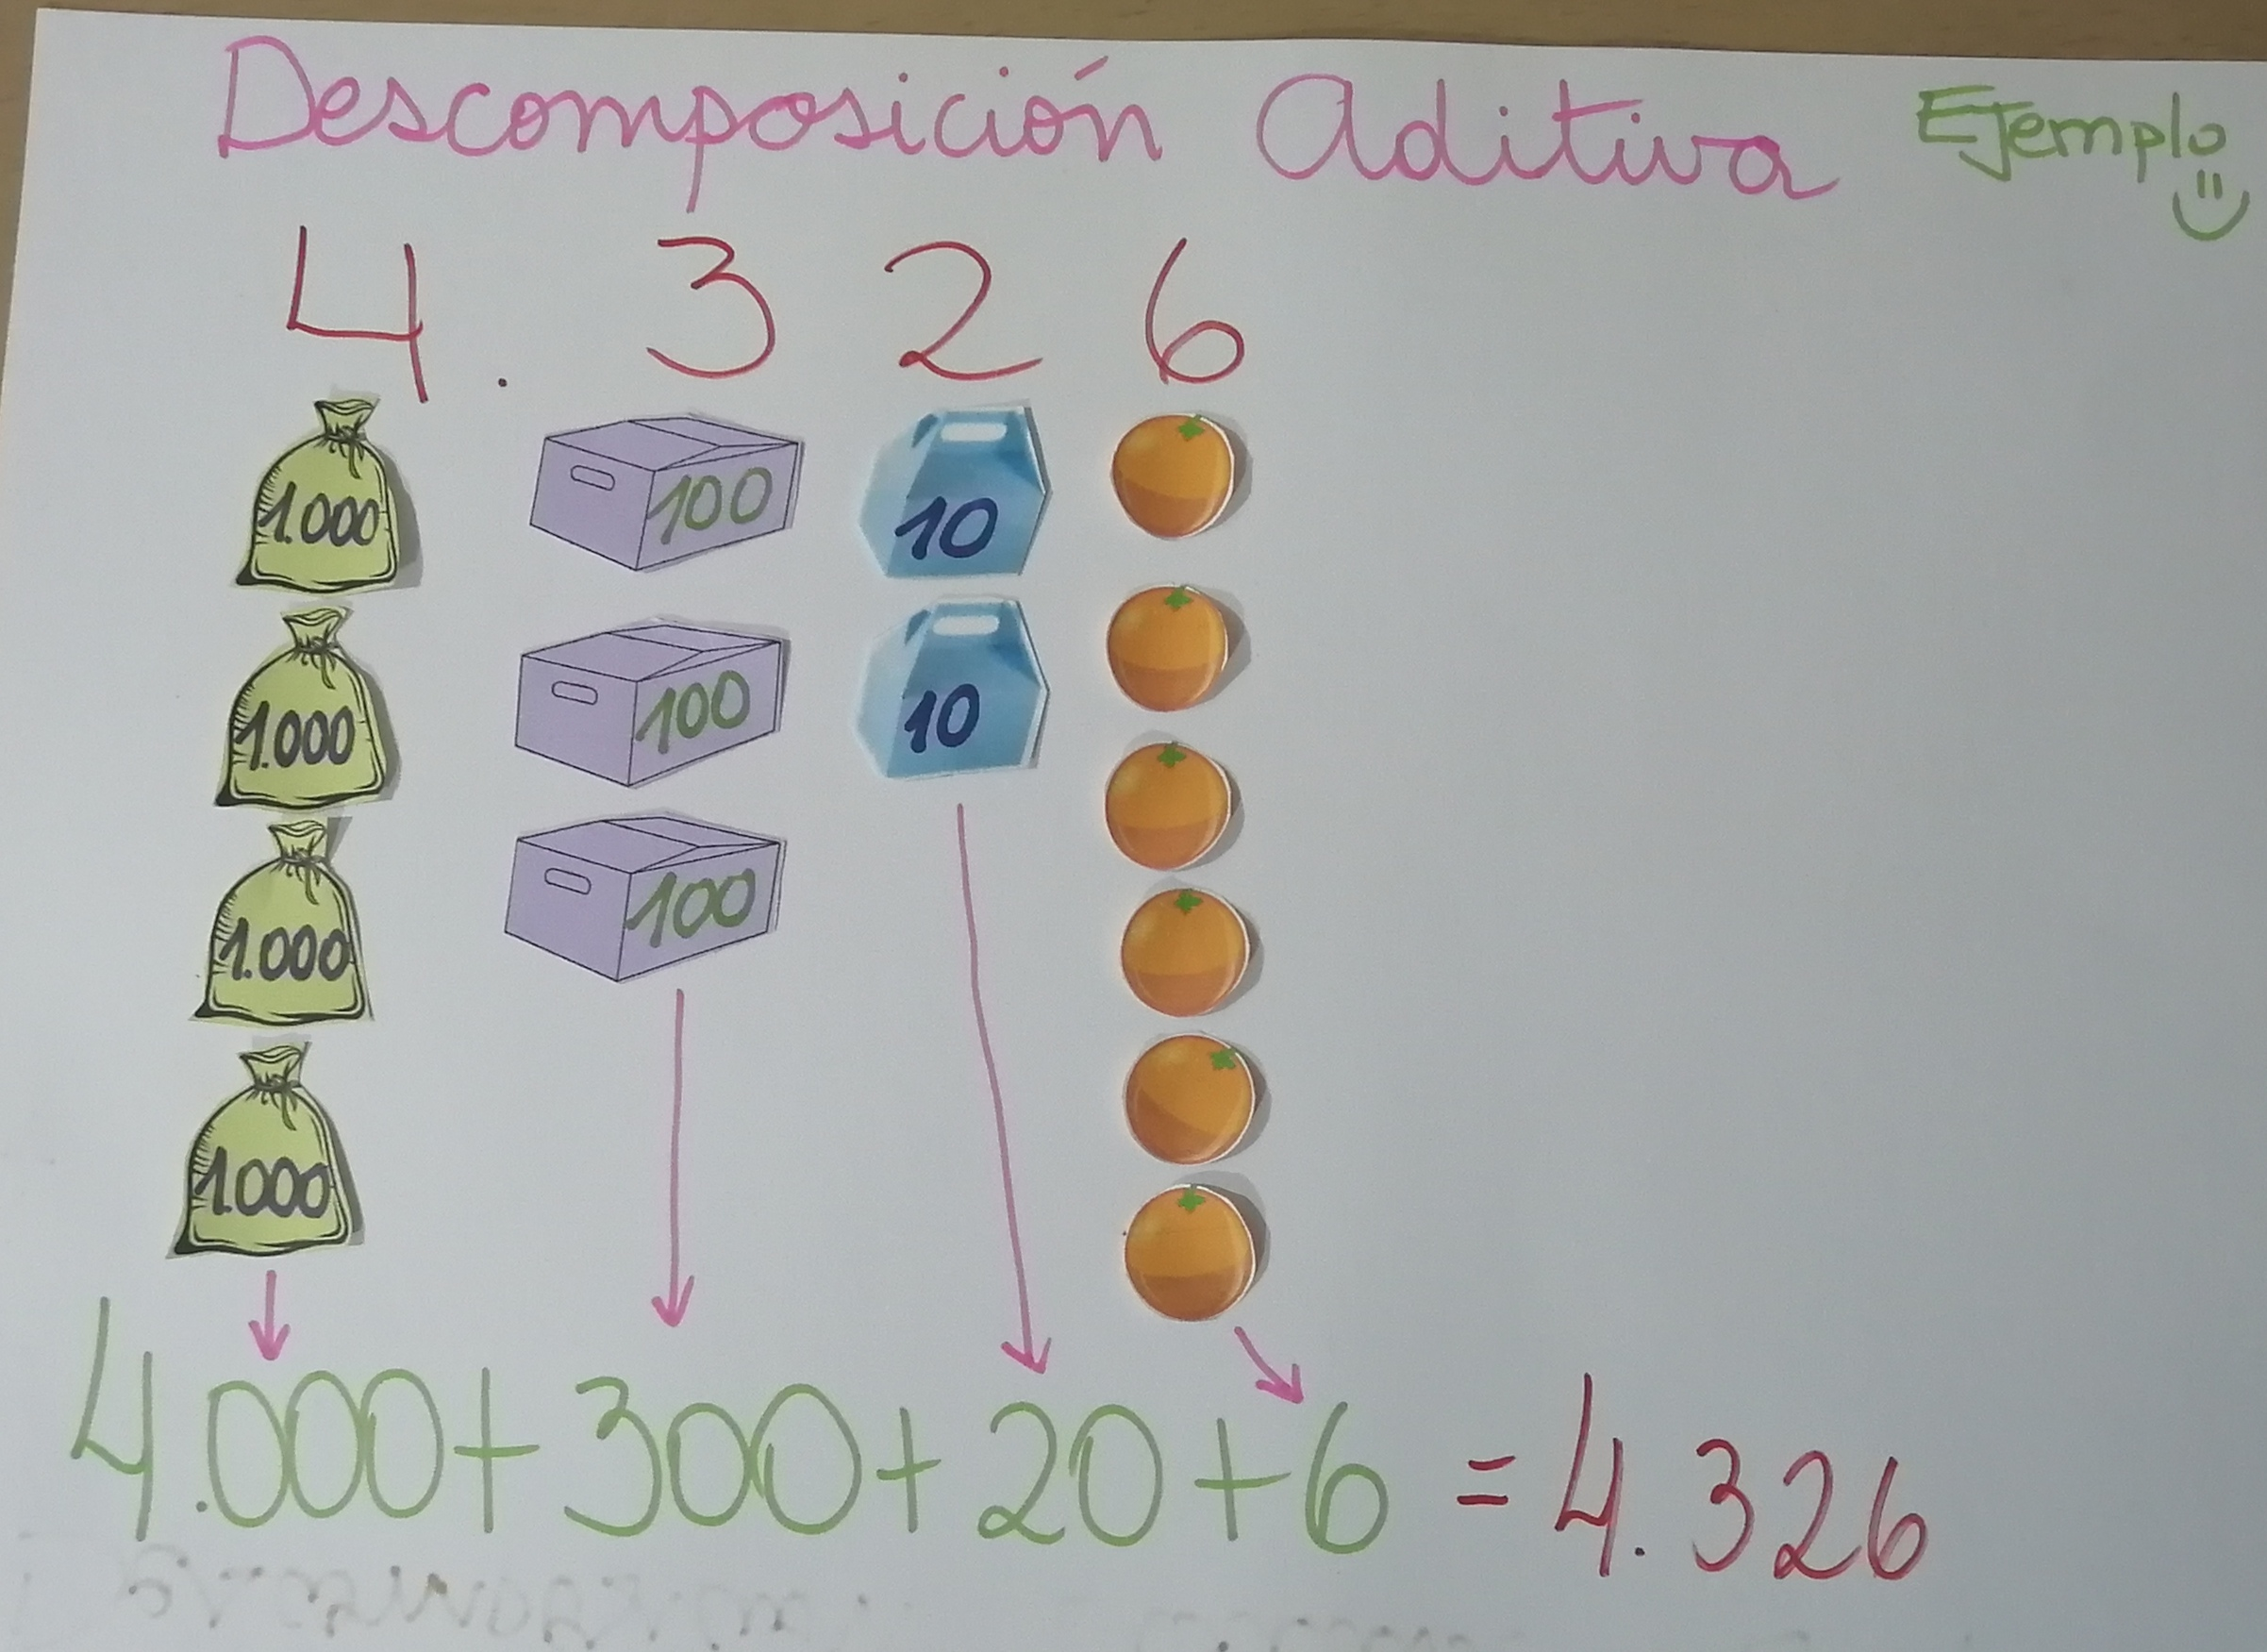 Descomposición Aditiva Ejemplo
4.326
1.000 100 10
1.000 100 10
1.000 100
1.000
4.000+300+20+6 = 4.326